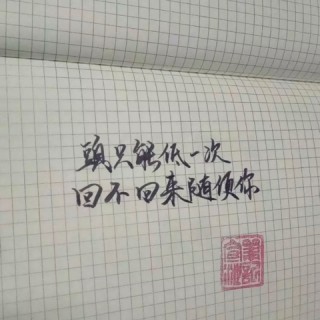 頭只能低一次
回不回来随便你